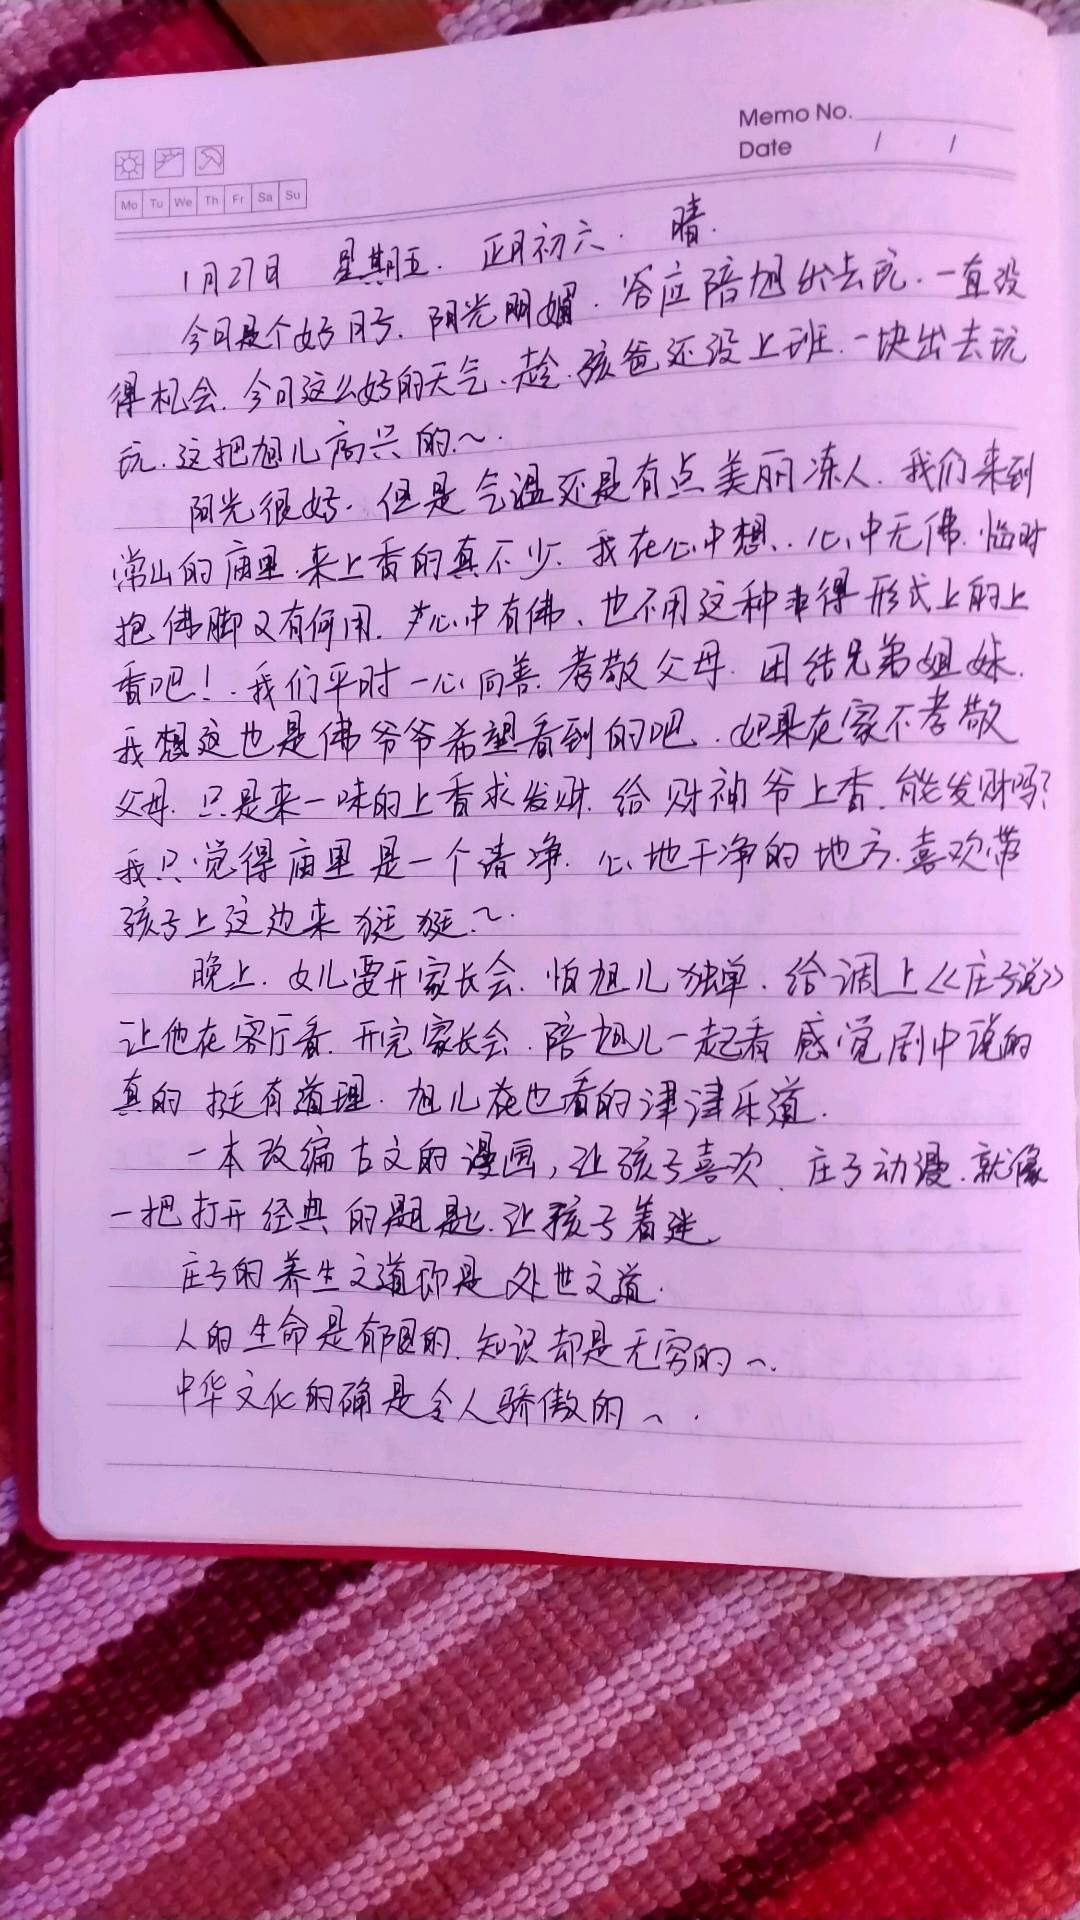 Memo No.
Date / /
Mo Tu We Th Fr Sa Su
1月27日 星期五. 正月初六. 晴.
今日是个好日子. 阳光明媚. 答应陪旭出去玩. 一直没
得机会. 今日这么好的天气. 趁孩爸还没上班. 一块出去玩
玩. 这把旭儿高兴的~.
阳光很好. 但是气温还是有点美丽冻人. 我们来到
常山的庙里. 来上香的真不少. 我在心中想.. 心中无佛. 临时
抱佛脚又有何用. 心中有佛、也不用这种 形式上的上
香吧！. 我们平时一心向善. 孝敬父母. 团结兄弟姐妹.
我想这也是佛爷爷希望看到的吧. 如果在家不孝敬
父母. 只是来一味的上香求发财. 给财神爷上香. 能发财吗？
我只觉得庙里是一个清净. 心地干净的地方. 喜欢带
孩子上这边来 ~.
晚上. 女儿要开家长会. 怕旭儿独单. 给调上《庄子说》
让他在客厅看. 开完家长会. 陪旭儿一起看 感觉剧中说的
真的挺有道理. 旭儿 也看的津津乐道.
一本改编古文的漫画, 让孩子喜欢. 庄子动漫. 就像
一把打开经典的 . 让孩子着迷.
庄子的养生之道即是处世之道.
人的生命是有限的. 知识却是无穷的~.
中华文化的确是令人骄傲的~.